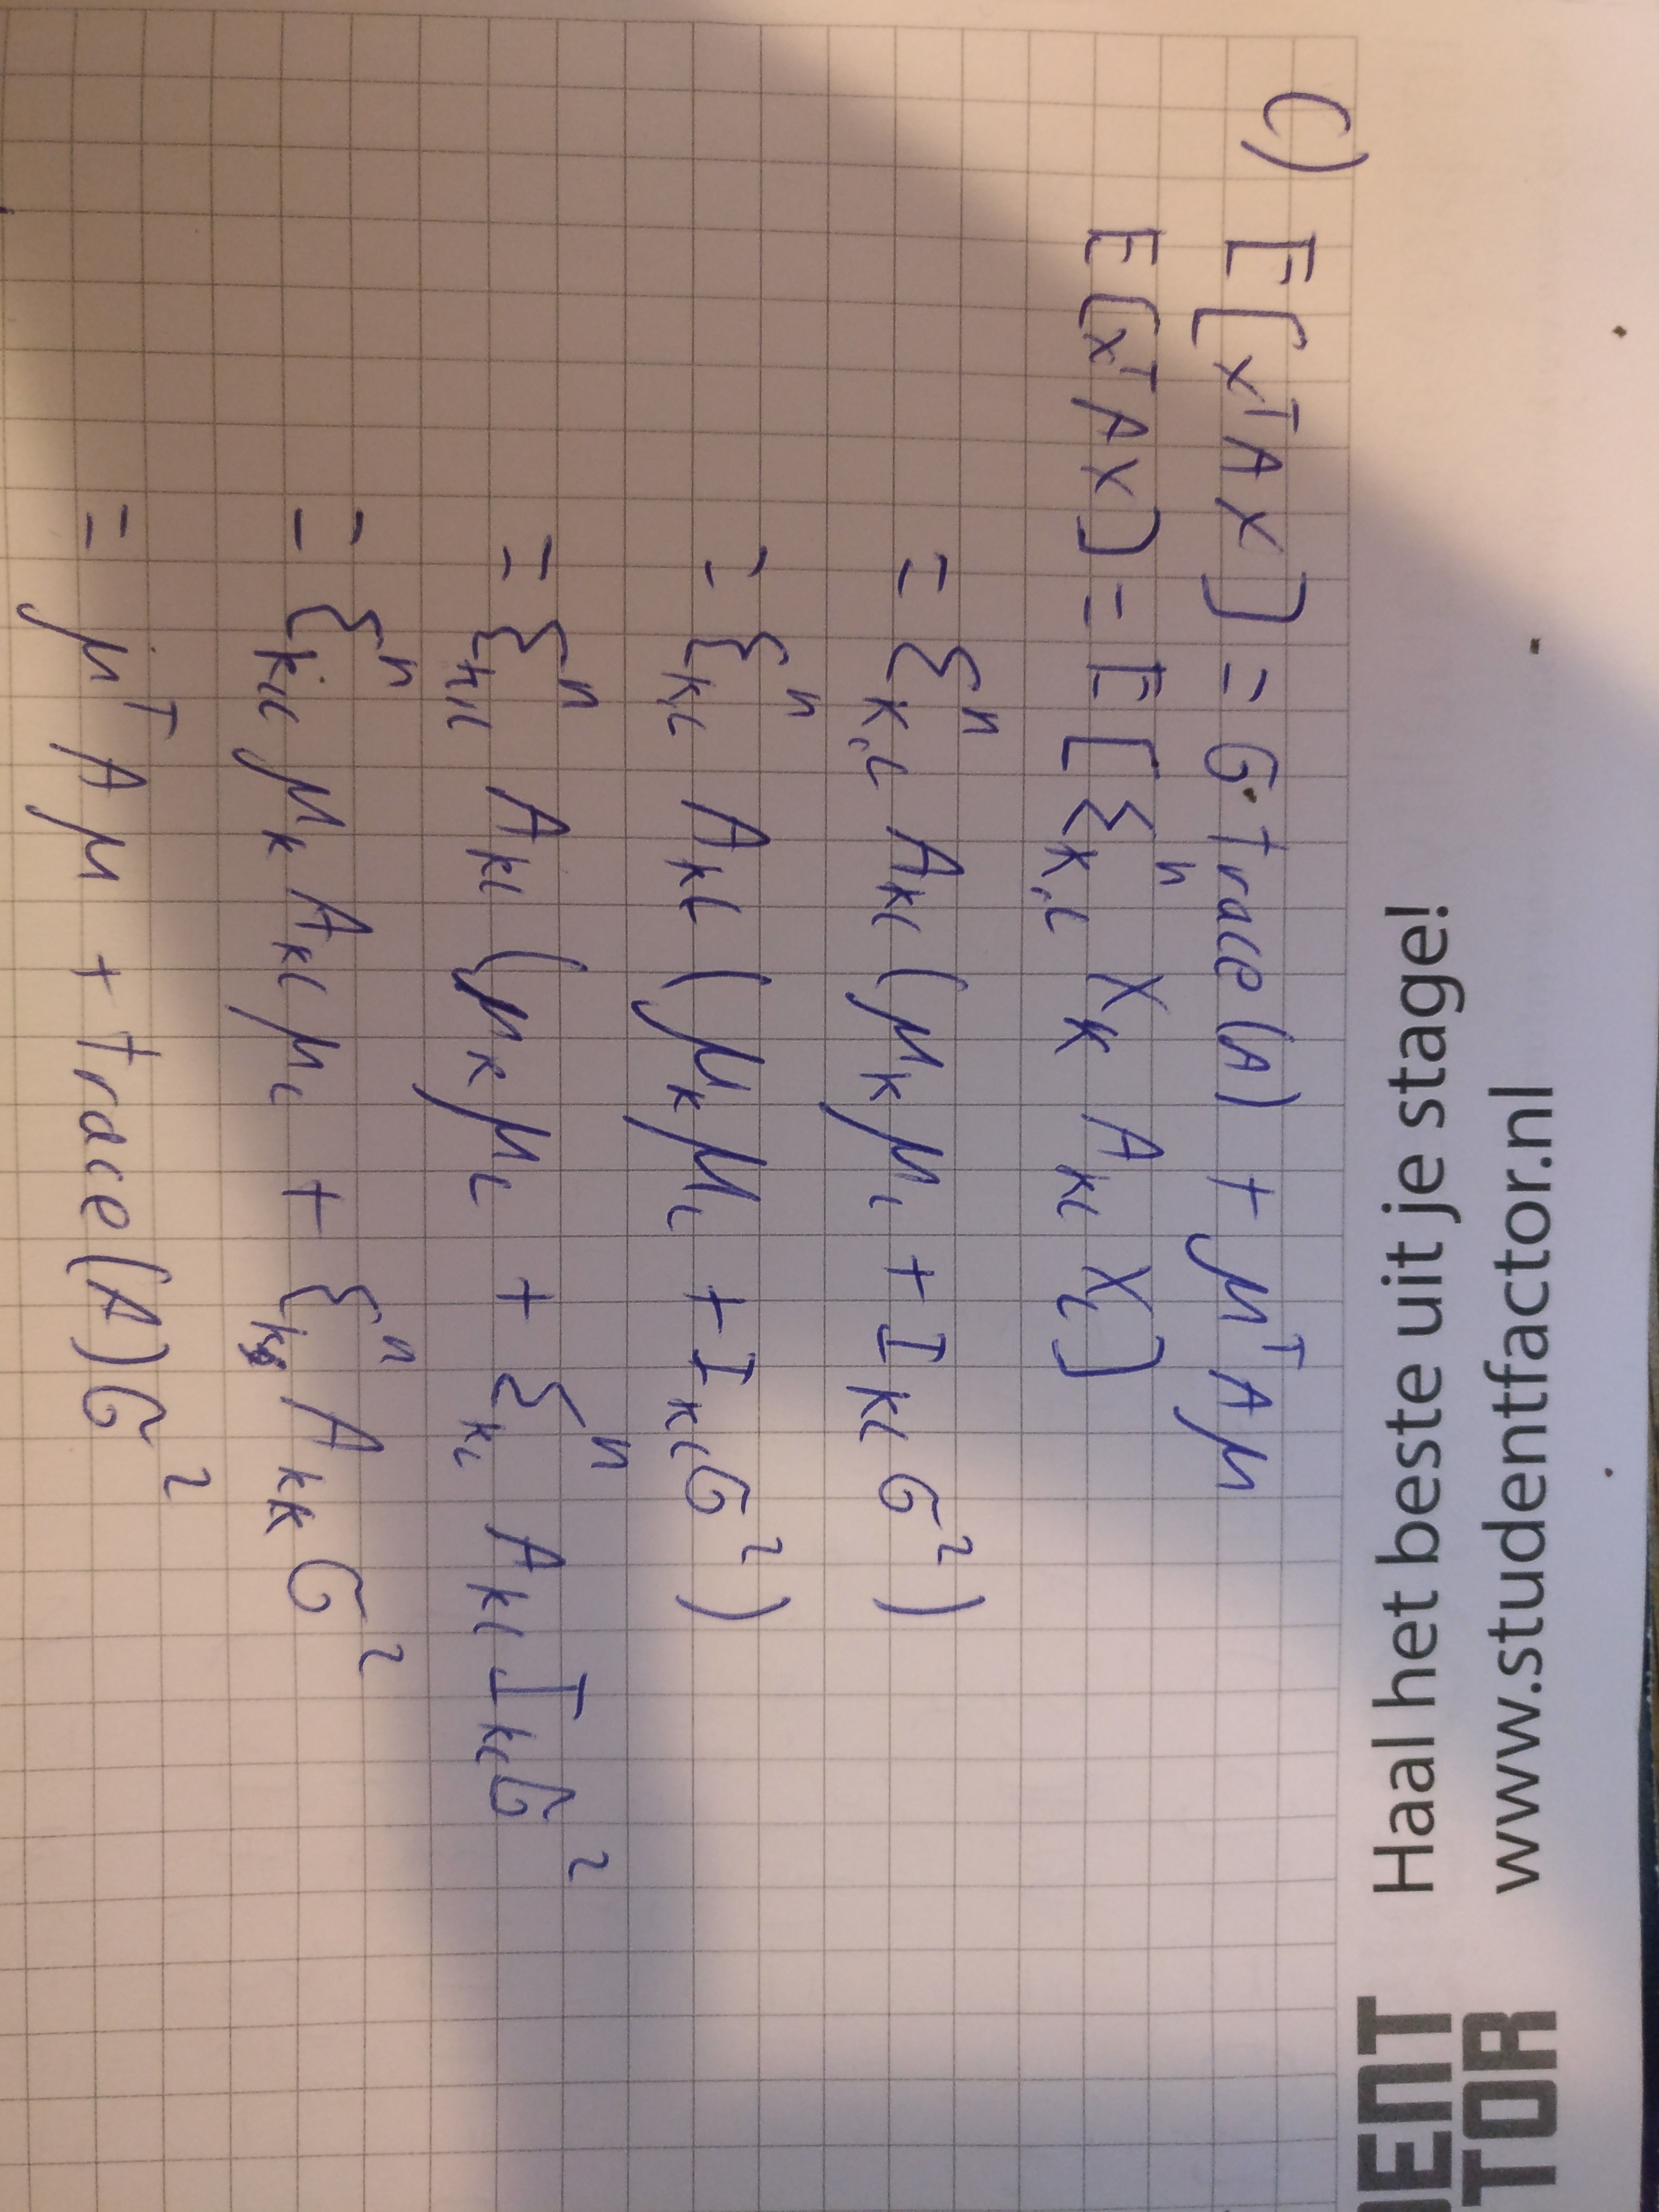 www.studentfactor.nl
Haal het beste uit je stage!
TOR
ENT
C) E[xᵀAX] = σ·trace(A) + μᵀAμ
E[xᵀAX] = E[Σ_{k,l}^n X_k A_{kl} X_l]
= Σ_{k,l}^n A_{kl}(μ_k μ_l + I_{kl}σ²)
= Σ_{k,l}^n A_{kl}(μ_k μ_l + I_{kl}σ²)
= Σ_{k,l}^n A_{kl}(μ_k μ_l + Σ_{kl}^n A_{kl} I_{kl}σ²
= Σ_{k,l}^n μ_k A_{kl} μ_l + Σ_k^n A_{kk}σ²
= μᵀAμ + trace(A)σ²